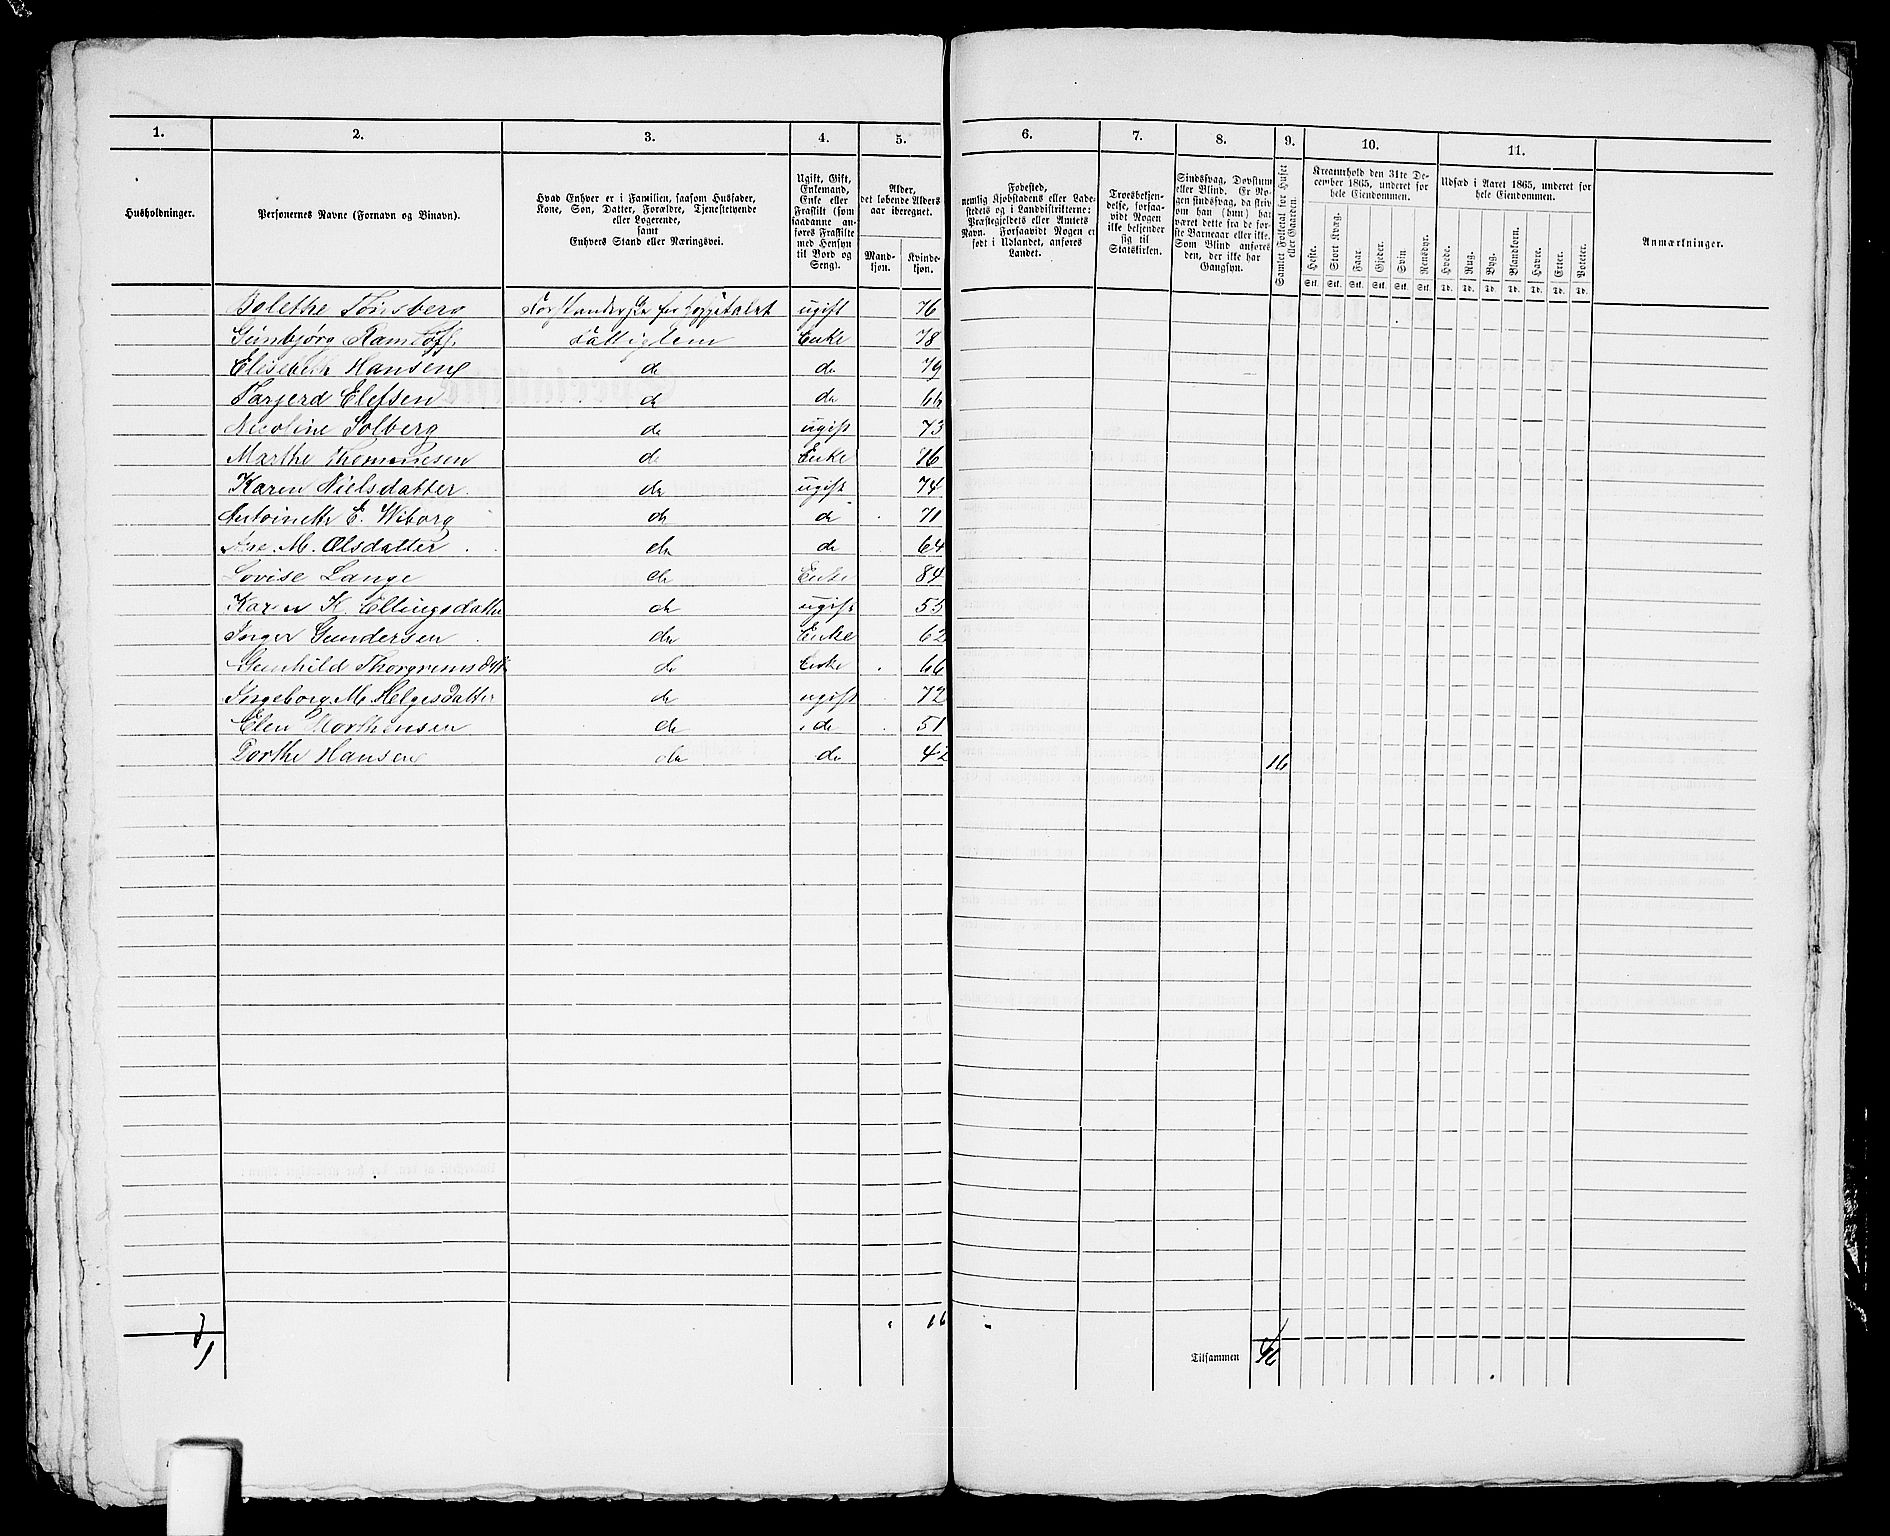 1. 2. 3. 4. 5. 6. 7. 8. 9. 10. 11.
Husholdninger.
Personernes Navne (Fornavn og Binavn).
Hvad Enhver er i Familien, saasom Husfader,
Kone, Søn, Datter, Forældre, Tjenestetyende
eller Logerende,
samt
Enhvers Stand eller Næringsvei.
Ugift, Gift,
Enkemand,
Enke eller
Fraskilt (som
saadanne an-
føres Fraskilte
med Hensyn
til Bord og
Seng).
Alder,
det løbende Alders-
aar iberegnet.
Mand-
kjøn.
Kvinde-
kjøn.
Fødested,
nemlig Kjøbstadens eller Lade-
stedets og i Landdistrikterne:
Præstegjeldets eller Amtets
Navn. Forsaavidt Nogen er
født i Udlandet, anføres
Landet.
Troesbekjen-
delse, forsaa-
vidt Nogen
ikke bekjender
sig til
Statskirken.
Sindssvag, Døvstum
eller Blind. Er No-
gen sindssvag, da skriv
om han (hun) har
været dette fra de før-
ste Barneaar eller ikke.
Som Blind anføres
den, der ikke har
Gangsyn.
Samlet Folketal for Huset
eller Gaarden.
Kreaturhold den 31te De-
cember 1865, underet for
hele Eiendommen.
Heste. Stort Kvæg. Faar Gjeder. Svin Rensdyr.
Stk. Stk. Stk. Stk. Stk. Stk.
Udsæd i Aaret 1865, underet for
hele Eiendommen.
Hvede. Rug. Byg. Blandkorn. Havre. Erter. Poteter.
Td. Td. Td. Td. Td. Td. Td.
Anmærkninger.
Bolethe Tönsberg Forstanderske for Hospitalet ugift 76
Gunbjörg Ramløff Fattiglem Enke 78
Elisebeth Hansen do do 79
Tarjerd Elefsen do do 66
Nicoline Solberg do ugift 73
Marthe Thommesen do Enke 76
Karen Nielsdatter do ugift 74
Antoinette E. Wiborg do do 71
Ane M. Olsdatter do do 64
Lovise Lange do Enke 84
Karen K. Ellingsdatter do ugift 55
Inger Gundersen do Enke 62
Gunhild Thorgrimsdtr do Enke 66
Ingeborg M. Helgesdatter do ugift 72
Elen Morthensen do do 51
Dorthe Hansen do do 42 16
16
Tilsammen 16